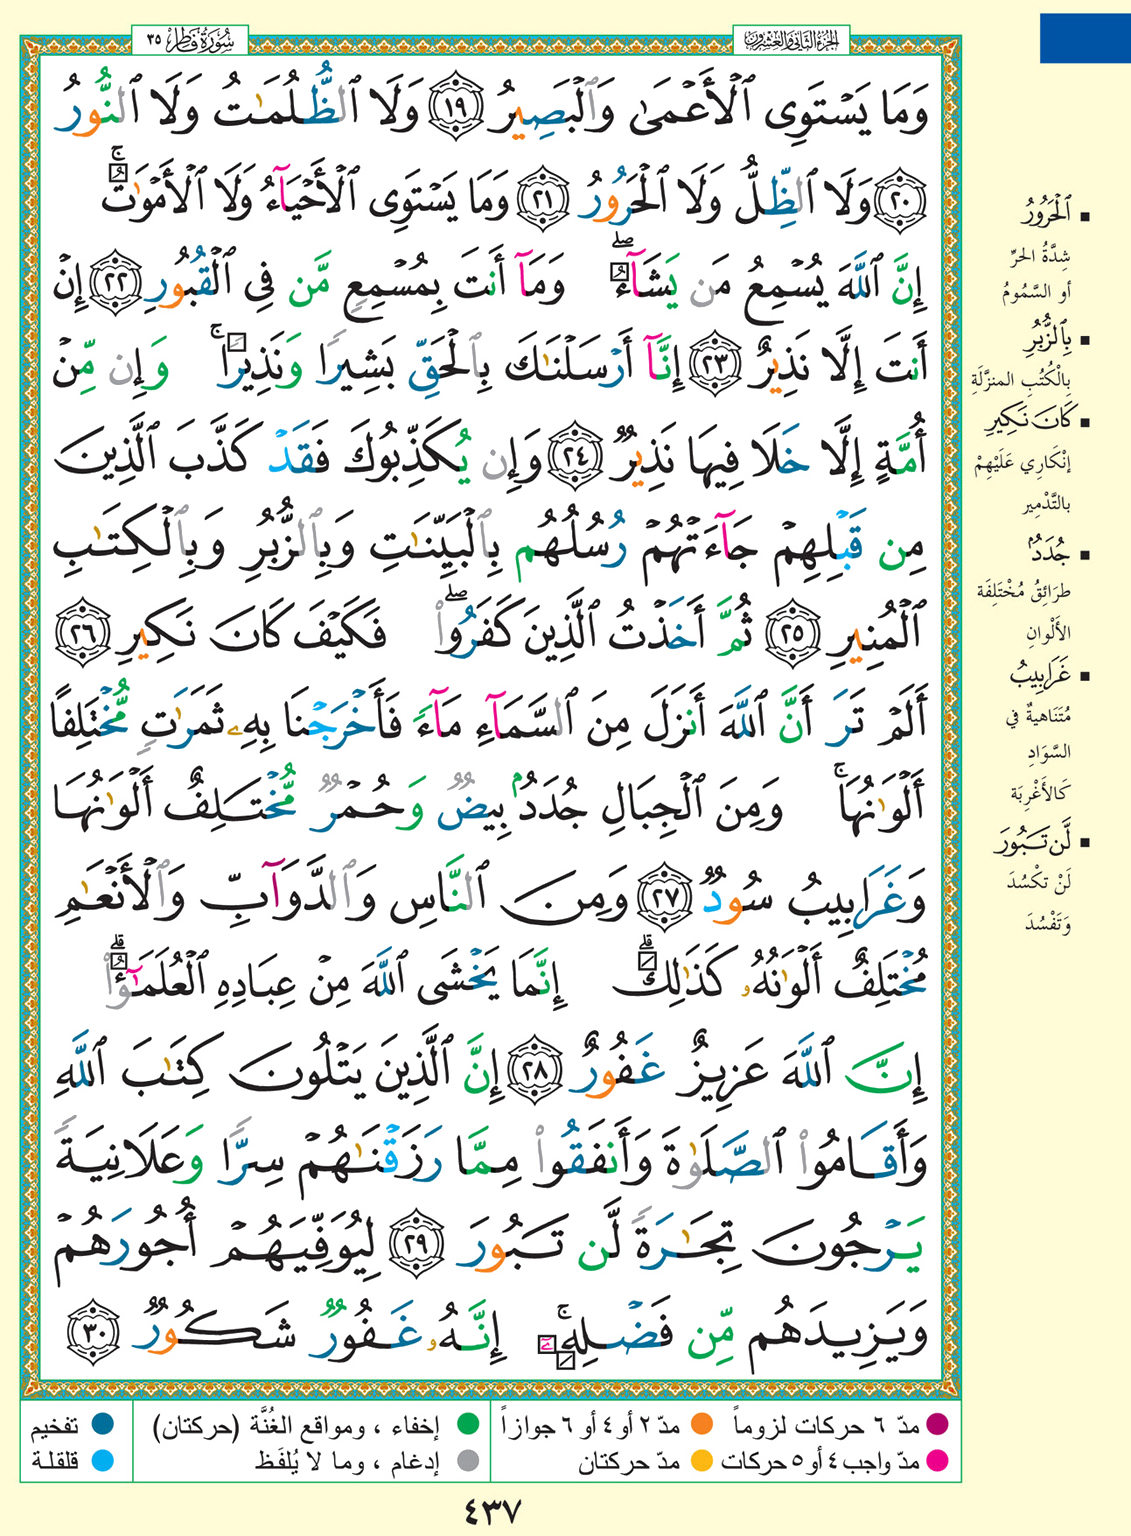 سُورَةُ فَاطِرٍ ٣٥
الجُزْءُ الثَّانِي وَالعِشْرُونَ
وَمَا يَسْتَوِى ٱلْأَعْمَىٰ وَٱلْبَصِيرُ ١٩ وَلَا ٱلظُّلُمَـٰتُ وَلَا ٱلنُّورُ
٢٠ وَلَا ٱلظِّلُّ وَلَا ٱلْحَرُورُ ٢١ وَمَا يَسْتَوِى ٱلْأَحْيَآءُ وَلَا ٱلْأَمْوَٰتُ ۚ
إِنَّ ٱللَّهَ يُسْمِعُ مَن يَشَآءُ ۖ وَمَآ أَنتَ بِمُسْمِعٍ مَّن فِى ٱلْقُبُورِ ٢٢ إِنْ
أَنتَ إِلَّا نَذِيرٌ ٢٣ إِنَّآ أَرْسَلْنَـٰكَ بِٱلْحَقِّ بَشِيرًا وَنَذِيرًا ۚ وَإِن مِّنْ
أُمَّةٍ إِلَّا خَلَا فِيهَا نَذِيرٌ ٢٤ وَإِن يُكَذِّبُوكَ فَقَدْ كَذَّبَ ٱلَّذِينَ
مِن قَبْلِهِمْ جَآءَتْهُمْ رُسُلُهُم بِٱلْبَيِّنَـٰتِ وَبِٱلزُّبُرِ وَبِٱلْكِتَـٰبِ
ٱلْمُنِيرِ ٢٥ ثُمَّ أَخَذْتُ ٱلَّذِينَ كَفَرُوا۟ ۖ فَكَيْفَ كَانَ نَكِيرِ ٢٦
أَلَمْ تَرَ أَنَّ ٱللَّهَ أَنزَلَ مِنَ ٱلسَّمَآءِ مَآءً فَأَخْرَجْنَا بِهِۦ ثَمَرَٰتٍ مُّخْتَلِفًا
أَلْوَٰنُهَا ۚ وَمِنَ ٱلْجِبَالِ جُدَدٌۢ بِيضٌ وَحُمْرٌ مُّخْتَلِفٌ أَلْوَٰنُهَا
وَغَرَابِيبُ سُودٌ ٢٧ وَمِنَ ٱلنَّاسِ وَٱلدَّوَآبِّ وَٱلْأَنْعَـٰمِ
مُخْتَلِفٌ أَلْوَٰنُهُۥ كَذَٰلِكَ ۗ إِنَّمَا يَخْشَى ٱللَّهَ مِنْ عِبَادِهِ ٱلْعُلَمَـٰٓؤُا۟ ۗ
إِنَّ ٱللَّهَ عَزِيزٌ غَفُورٌ ٢٨ إِنَّ ٱلَّذِينَ يَتْلُونَ كِتَـٰبَ ٱللَّهِ
وَأَقَامُوا۟ ٱلصَّلَوٰةَ وَأَنفَقُوا۟ مِمَّا رَزَقْنَـٰهُمْ سِرًّا وَعَلَانِيَةً
يَرْجُونَ تِجَـٰرَةً لَّن تَبُورَ ٢٩ لِيُوَفِّيَهُمْ أُجُورَهُمْ
وَيَزِيدَهُم مِّن فَضْلِهِۦٓ ۚ إِنَّهُۥ غَفُورٌ شَكُورٌ ٣٠
▪ ٱلْحَرُورُ
شِدَّةُ الحَرِّ
أو السَّمُومُ
▪ بِٱلزُّبُرِ
بِالْكُتُبِ المنزَّلَةِ
▪ كَانَ نَكِيرِ
إنْكَارِي عَلَيْهِمْ
بالتَّدْمِير
▪ جُدَدٌۢ
طرَائِقُ مُخْتَلِفَة
الأَلْوانِ
▪ غَرَابِيبُ
مُتَنَاهيةٌ في
السَّوَادِ
كَالأَغْرِبَة
▪ لَّن تَبُورَ
لَنْ تكْسُدَ
وَتَفْسُدَ
مدّ ٦ حركات لزوماً
مدّ ٢ أو ٤ أو ٦ جوازاً
إخفاء ، ومواقع الغُنَّة (حركتان)
تفخيم
مدّ واجب ٤ أو ٥ حركات
مدّ حركتان
إدغام ، وما لا يُلفَظ
قلقلة
٤٣٧